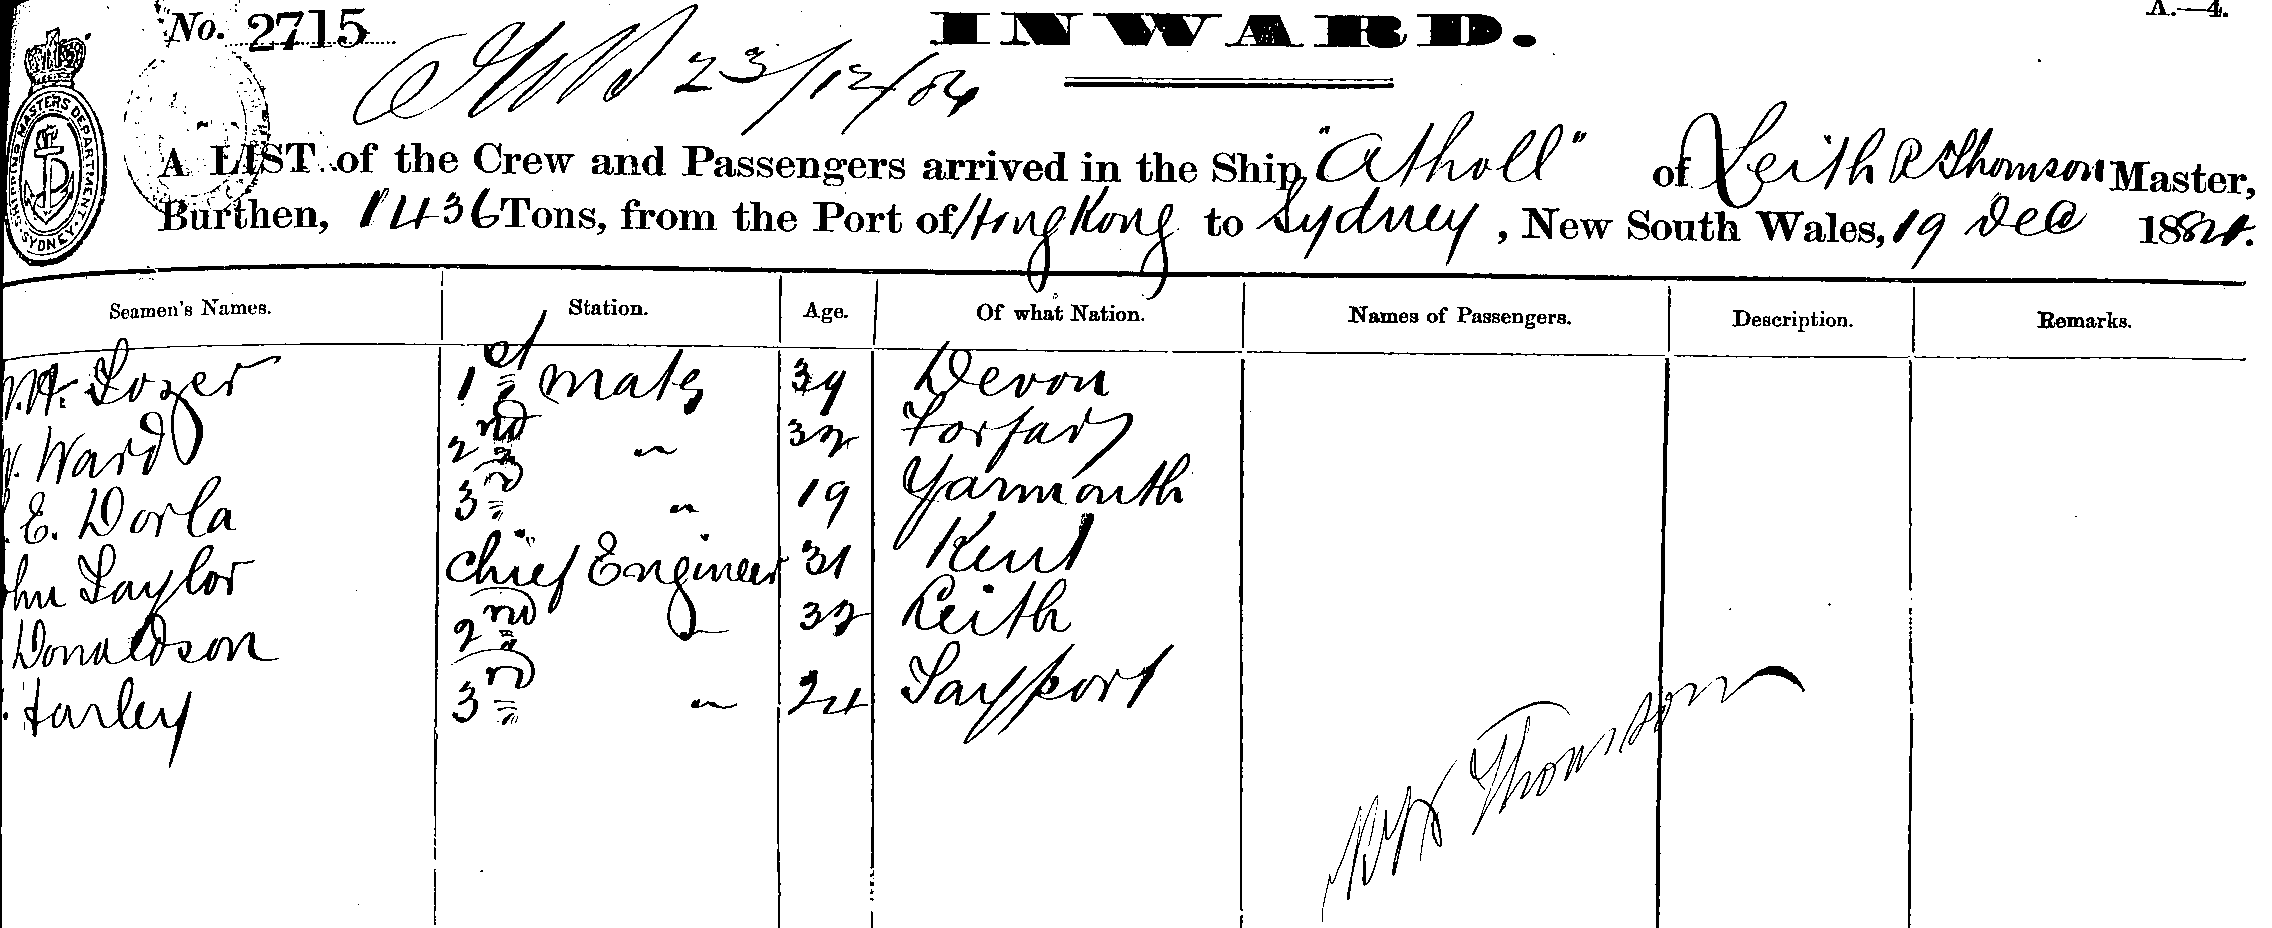 No. 2715
INWARD.
A.—4.
23/12/84
SHIPPING MASTERS DEPARTMENT
SYDNEY
A LIST of the Crew and Passengers arrived in the Ship "Atholl" of Leith R Thomson Master,
Burthen, 1436 Tons, from the Port of Hong Kong to Sydney, New South Wales, 19 Dec 1884.
Seamen's Names. Station. Age. Of what Nation. Names of Passengers. Description. Remarks.
H. Tozer 1st mate 39 Devon
Ward 2nd " 32 Forfar
E. Dorla 3rd " 19 Yarmouth
Taylor Chief Engineer 31 Kent
Donaldson 2nd " 32 Leith
Harley 3rd " 24 Tayport
Thomson